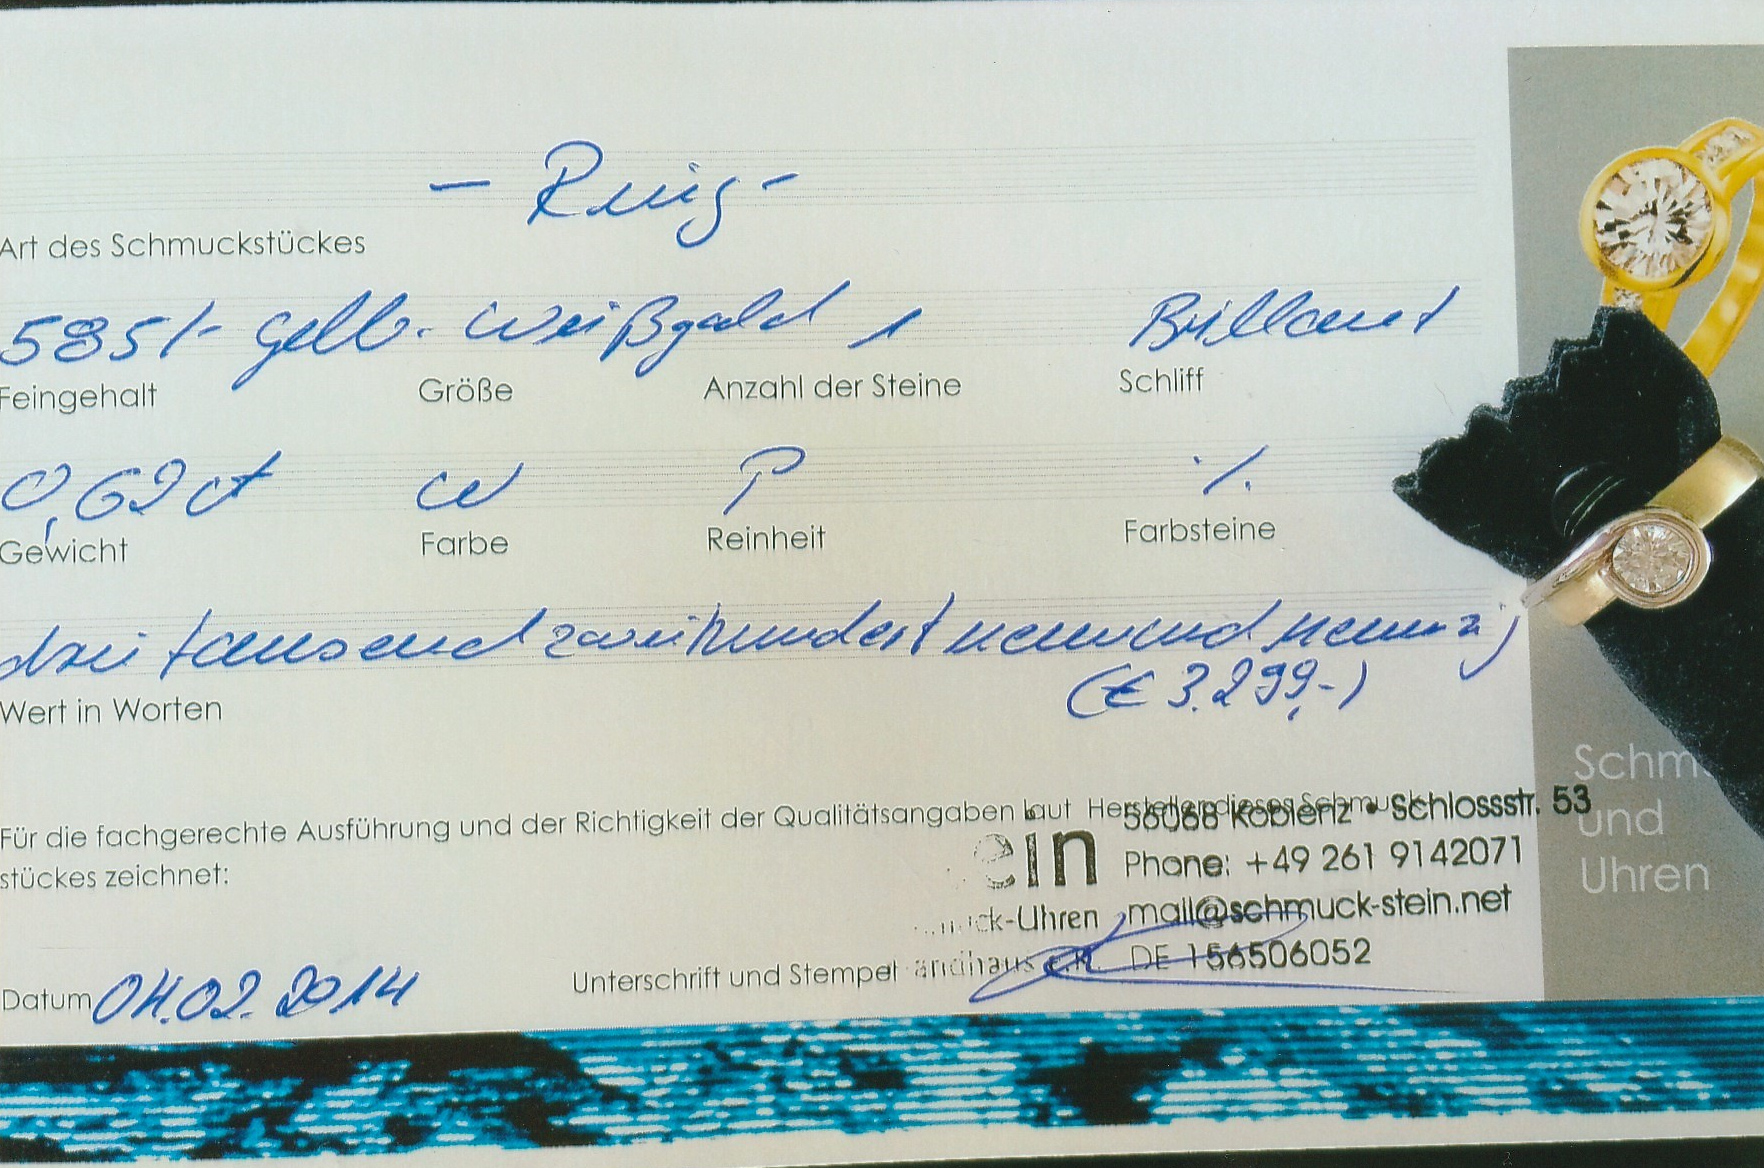 - Ring -
Art des Schmuckstückes
585/- Gelb- Weißgold 1 Brillant
Feingehalt Größe Anzahl der Steine Schliff
0,62 ct W P ./.
Gewicht Farbe Reinheit Farbsteine
drei tausend zweihundert neunund neunzig
(€ 3.299,-)
Wert in Worten
Für die fachgerechte Ausführung und der Richtigkeit der Qualitätsangaben laut Hersteller dieses Schmuck-
stückes zeichnet:
56068 Koblenz • Schlossstr. 53
ein Phone: +49 261 9142071
ck-Uhren mail@schmuck-stein.net
DE 156506052
Datum 04.02.2014 Unterschrift und Stempel
Schm
und
Uhren